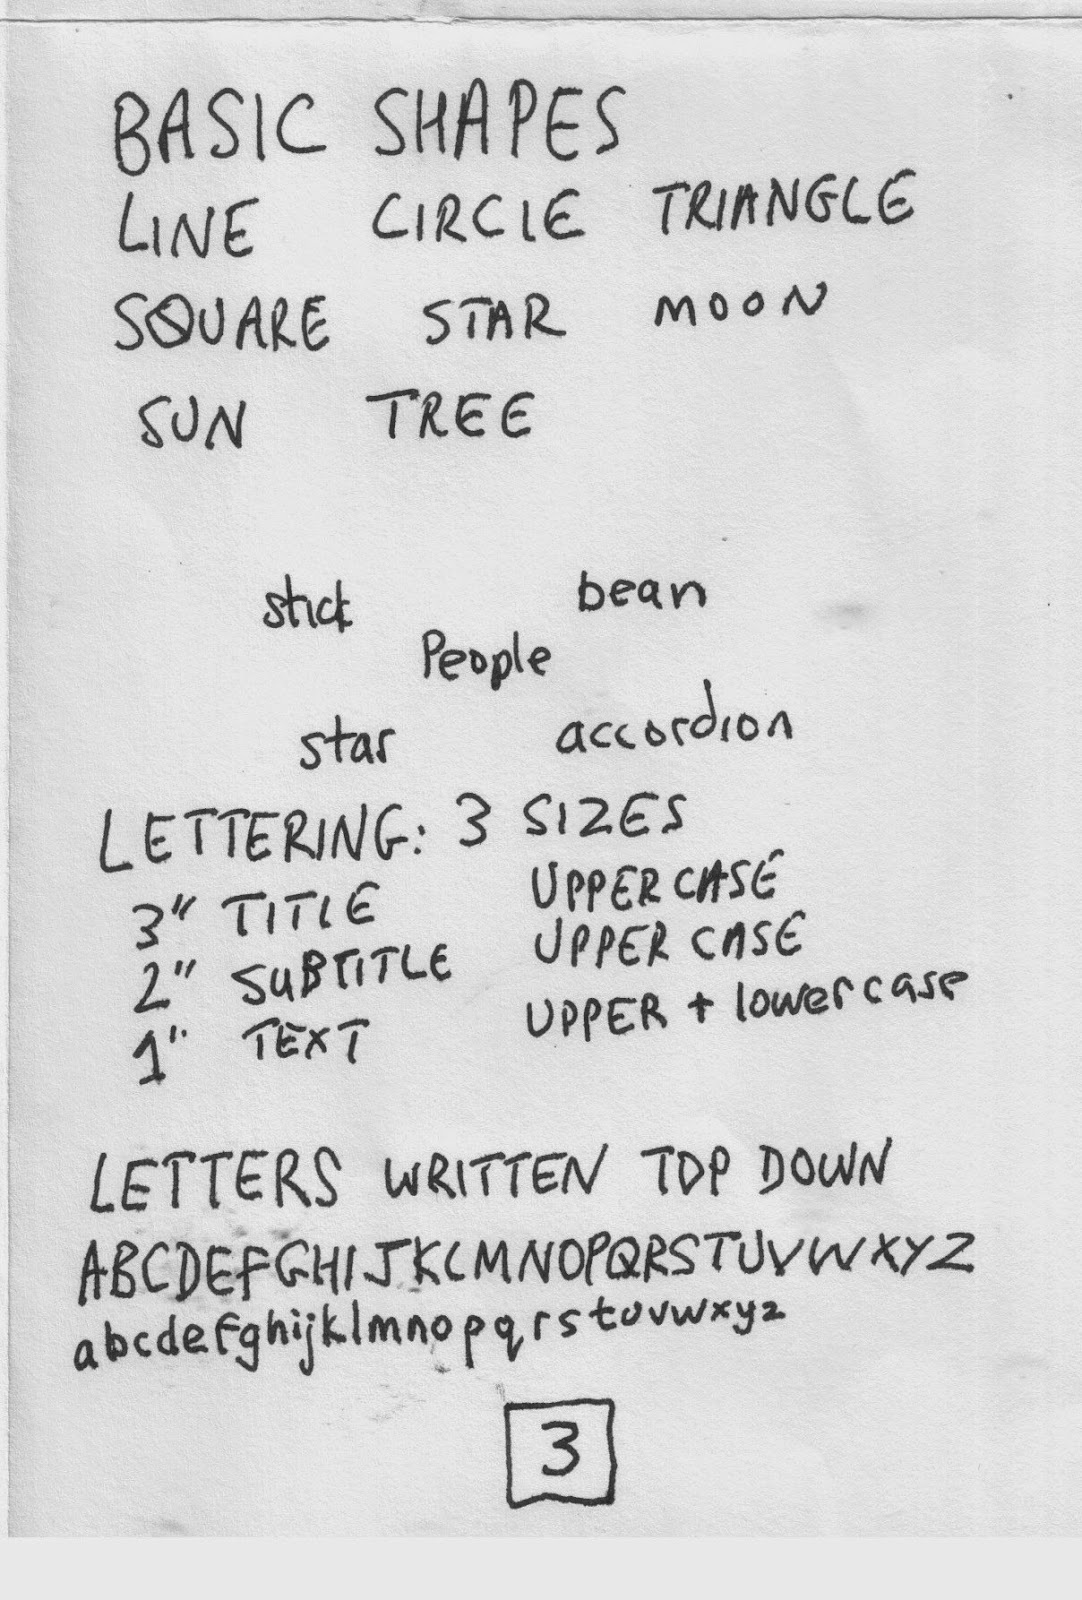 BASIC SHAPES
LINE CIRCLE TRIANGLE
SQUARE STAR MOON
SUN TREE
stick bean
People
star accordion
LETTERING: 3 SIZES
3" TITLE UPPER CASE
2" SUBTITLE UPPER CASE
1" TEXT UPPER + lower case
LETTERS WRITTEN TOP DOWN
ABCDEFGHIJKLMNOPQRSTUVWXYZ
abcdefghijklmnopqrstuvwxyz
3